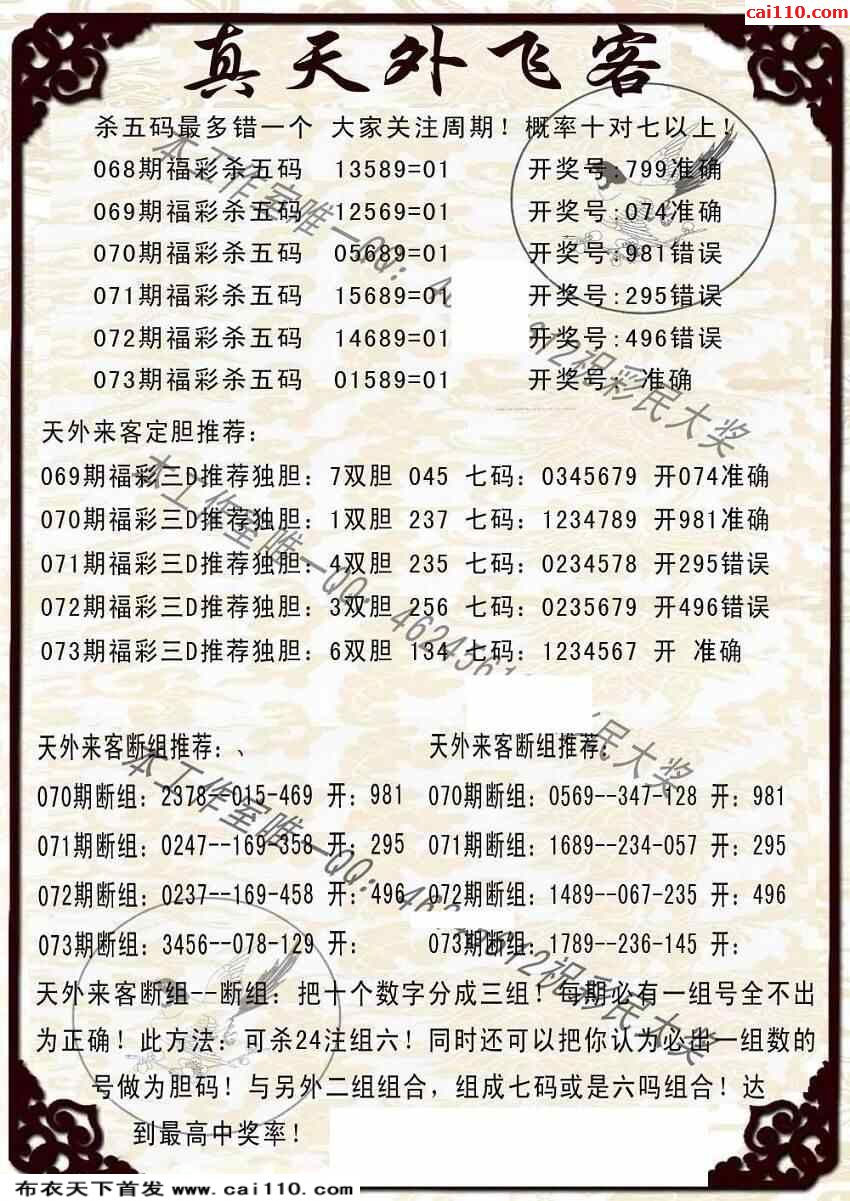 cai110.com
真天外飞客
杀五码最多错一个 大家关注周期！概率十对七以上！
068期福彩杀五码 13589=01 开奖号:799准确
069期福彩杀五码 12569=01 开奖号:074准确
070期福彩杀五码 05689=01 开奖号:981错误
071期福彩杀五码 15689=01 开奖号:295错误
072期福彩杀五码 14689=01 开奖号:496错误
073期福彩杀五码 01589=01 开奖号: 准确
天外来客定胆推荐：
069期福彩三D推荐独胆：7双胆 045 七码：0345679 开074准确
070期福彩三D推荐独胆：1双胆 237 七码：1234789 开981准确
071期福彩三D推荐独胆：4双胆 235 七码：0234578 开295错误
072期福彩三D推荐独胆：3双胆 256 七码：0235679 开496错误
073期福彩三D推荐独胆：6双胆 134 七码：1234567 开 准确
天外来客断组推荐：、
070期断组：2378--015-469 开：981
071期断组：0247--169-358 开：295
072期断组：0237--169-458 开：496
073期断组：3456--078-129 开：
天外来客断组推荐：
070期断组：0569--347-128 开：981
071期断组：1689--234-057 开：295
072期断组：1489--067-235 开：496
073期断组：1789--236-145 开：
天外来客断组--断组：把十个数字分成三组！每期必有一组号全不出
为正确！此方法：可杀24注组六！同时还可以把你认为必出一组数的
号做为胆码！与另外二组组合，组成七码或是六吗组合！达
到最高中奖率！
布衣天下首发 www.cai110.com